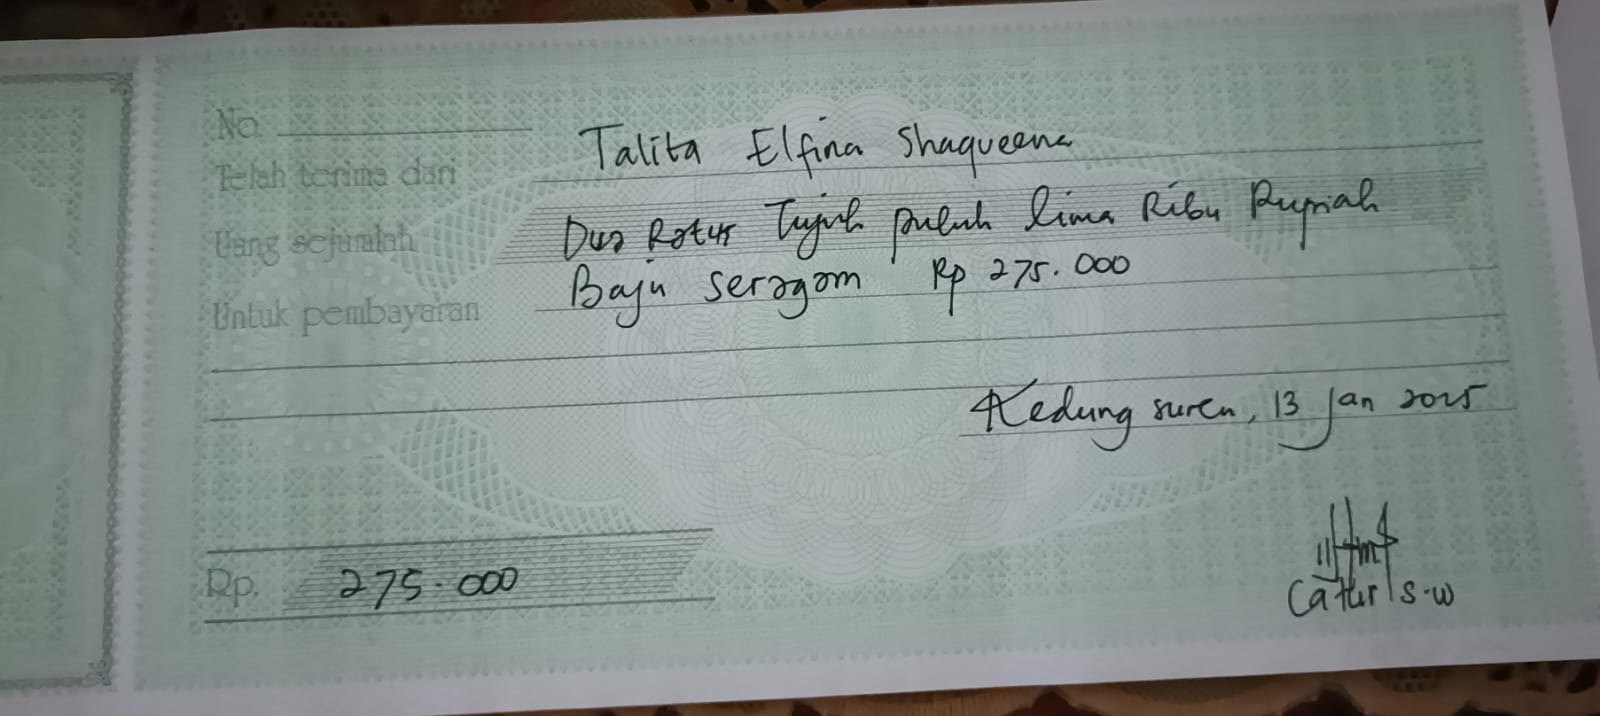 No.
Telah terima dari Talita Elfina Shaqueena
Uang sejumlah Dua Ratus Tujuh puluh lima Ribu Rupiah
Untuk pembayaran Baju seragam Rp 275.000
Kedung suren, 13 Jan 2025
Rp. 275.000
Catur S.W